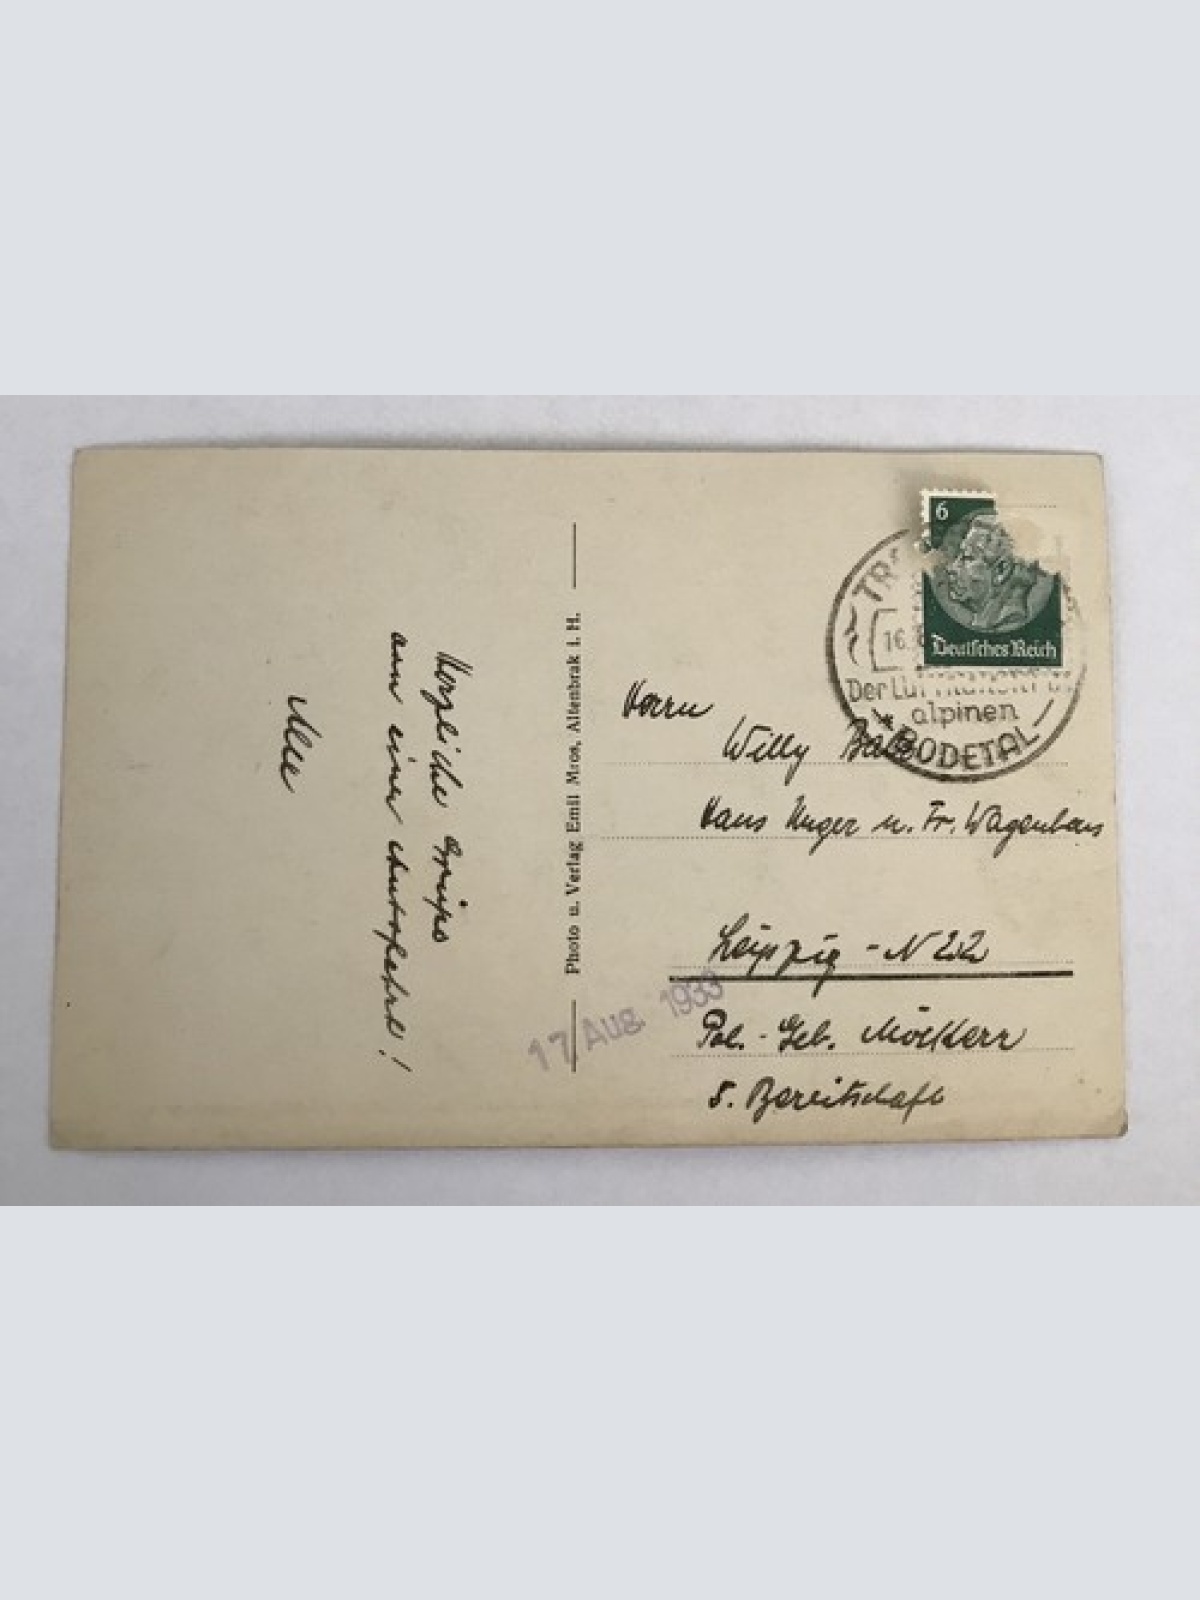 Herzliche Grüße
von einer Autofahrt!
Photo u. Verlag Emil Mros, Altenbrak i. H.
6
Deutsches Reich
TR
16.
Der Luftkurort i.
alpinen
BODETAL
Herrn
Willy
Hans Unger u. Fr. Wagenhaus
Leipzig - N 22
Pol. - Geb. Möckern
5. Bereitschaft
17 Aug. 1933